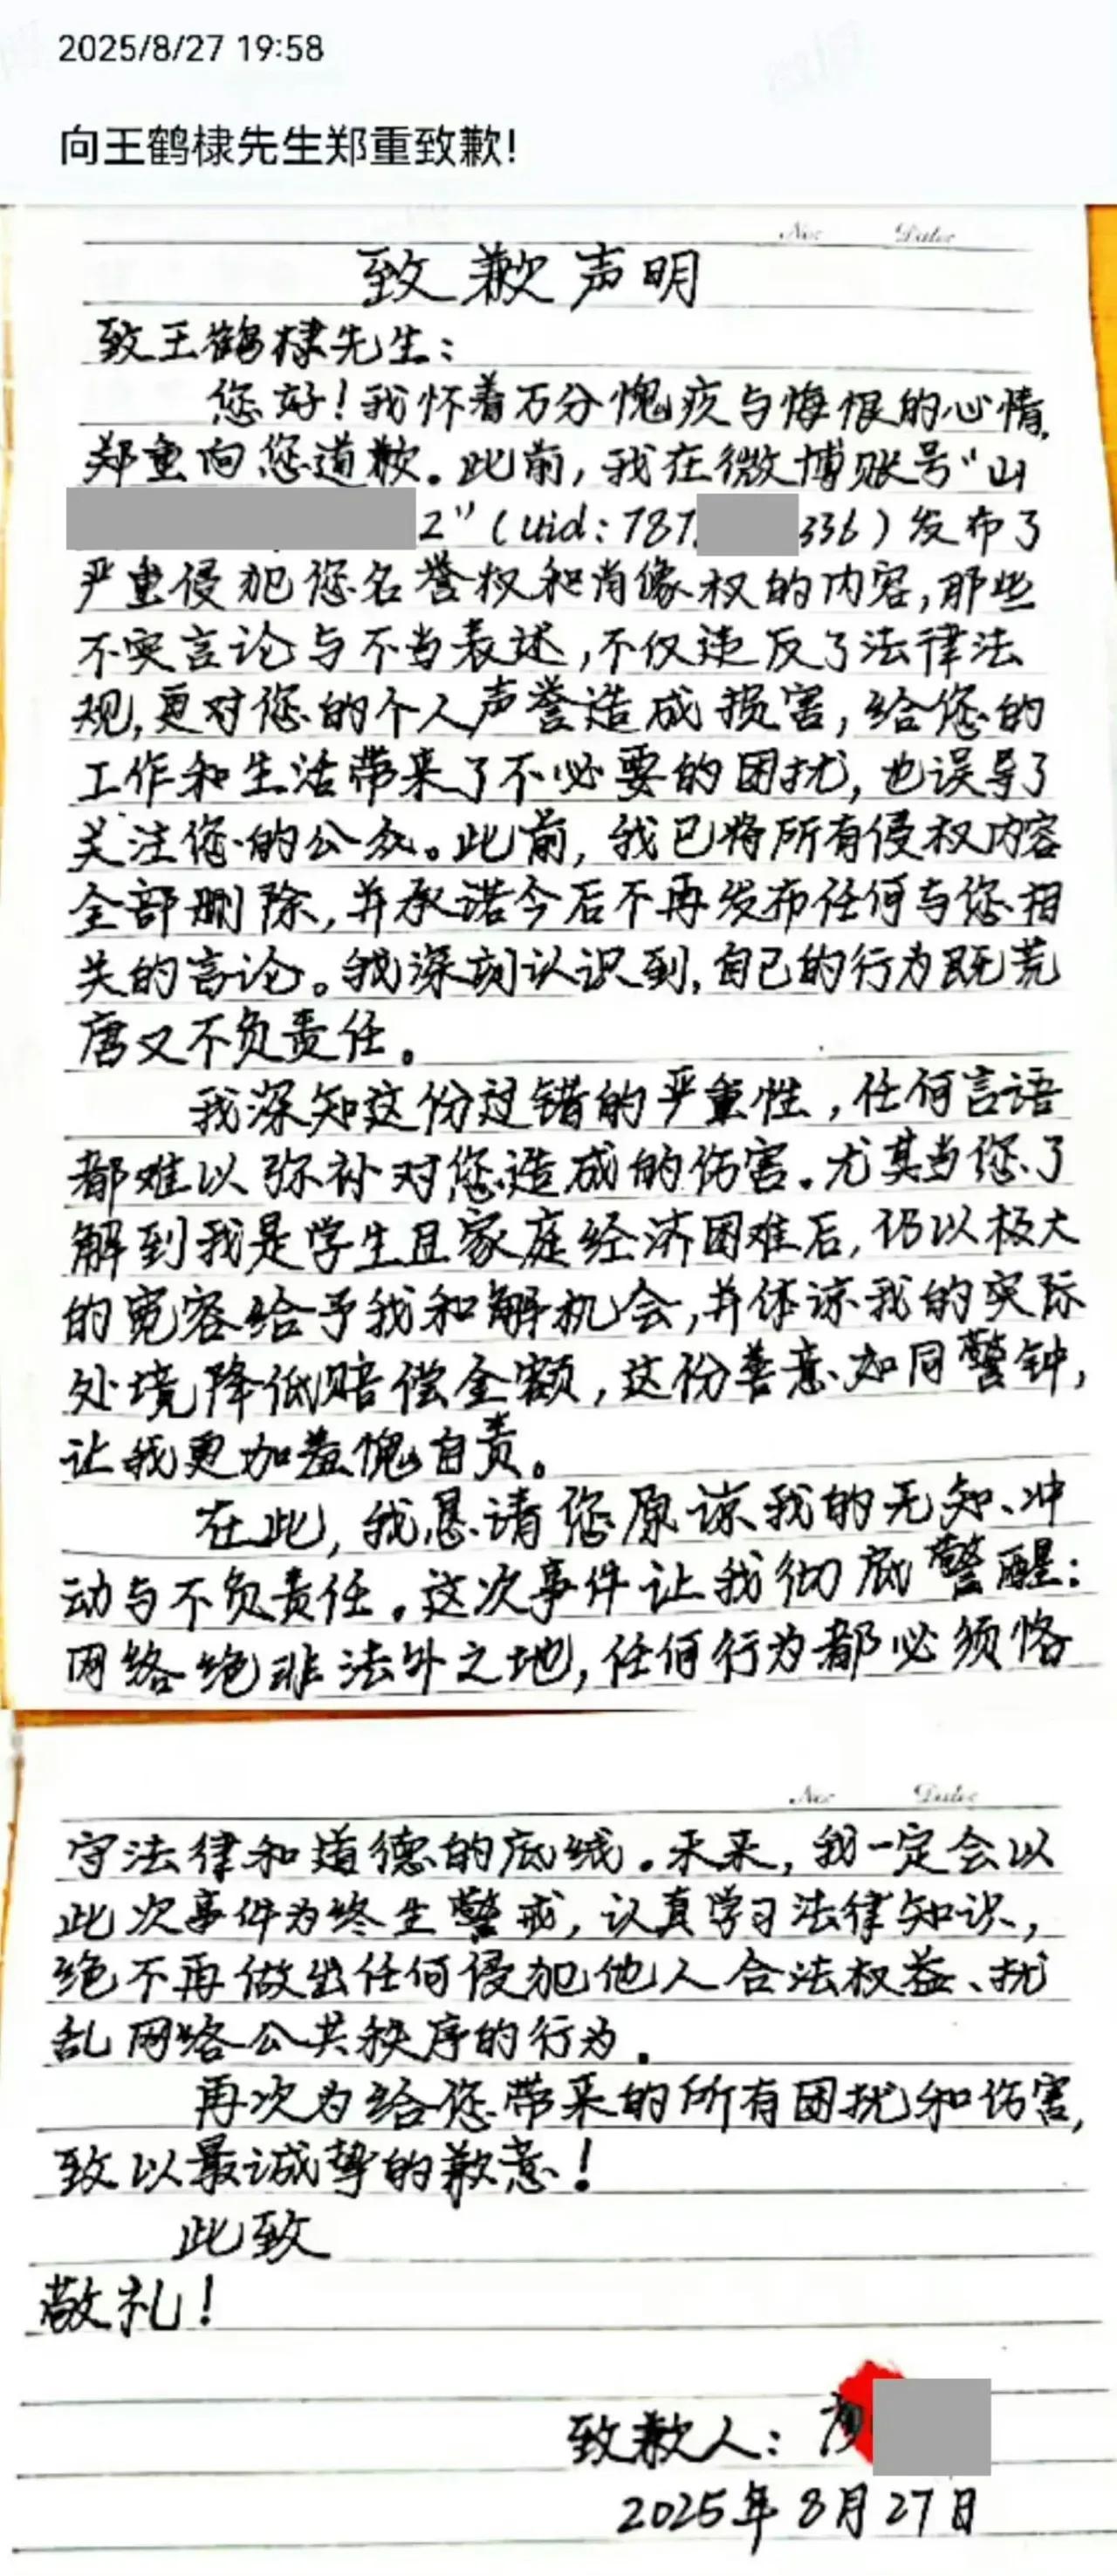 2025/8/27 19:58
向王鹤棣先生郑重致歉!
No: Date:
致歉声明
致王鹤棣先生：
您好！我怀着万分愧疚与悔恨的心情,
郑重向您道歉。此前，我在微博账号“山
2”（uid：787 336）发布了
严重侵犯您名誉权和肖像权的内容，那些
不实言论与不当表述，不仅违反了法律法
规，更对您的个人声誉造成损害，给您的
工作和生活带来了不必要的困扰，也误导了
关注您的公众。此前，我已将所有侵权内容
全部删除，并承诺今后不再发布任何与您相
关的言论。我深刻认识到，自己的行为既荒
唐又不负责任。
我深知这份过错的严重性，任何言语
都难以弥补对您造成的伤害。尤其当您了
解到我是学生且家庭经济困难后，仍以极大
的宽容给予我和解机会，并体谅我的实际
处境降低赔偿金额，这份善意如同警钟，
让我更加羞愧自责。
在此，我恳请您原谅我的无知、冲
动与不负责任。这次事件让我彻底警醒：
网络绝非法外之地，任何行为都必须恪
No: Date:
守法律和道德的底线。未来，我一定会以
此次事件为终生警戒，认真学习法律知识，
绝不再做出任何侵犯他人合法权益、扰
乱网络公共秩序的行为。
再次为给您带来的所有困扰和伤害，
致以最诚挚的歉意！
此致
敬礼！
致歉人：
2025年8月27日